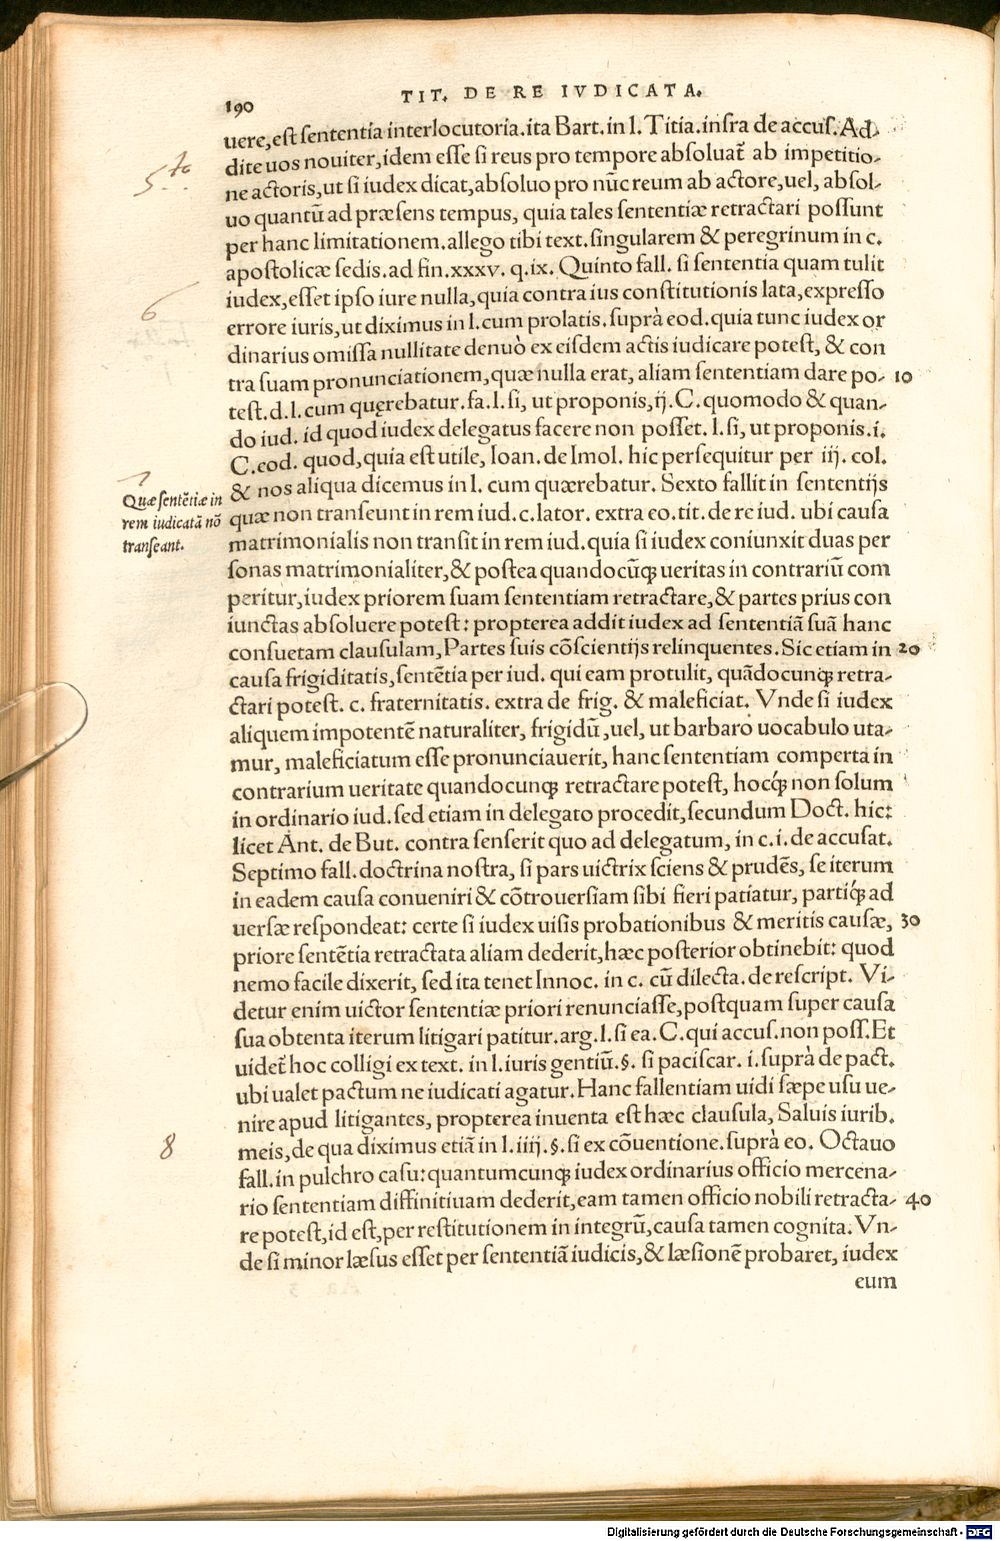 190
TIT. DE RE IVDICATA.
uere, est sententia interlocutoria. ita Bart. in l. Titia. infra de accus. Ad-
dite uos nouiter, idem esse si reus pro tempore absoluat̃ ab impetitio-
ne actoris, ut si iudex dicat, absoluo pro nũc reum ab actore, uel, absol-
uo quantũ ad præsens tempus, quia tales sententiæ retractari possunt
per hanc limitationem. allego tibi text. singularem & peregrinum in c.
apostolicæ sedis. ad fin. xxxv. q. ix. Quinto fall. si sententia quam tulit
iudex, esset ipso iure nulla, quia contra ius constitutionis lata, expresso
errore iuris, ut diximus in l. cum prolatis. suprà eod. quia tunc iudex or
dinarius omissa nullitate denuò ex eisdem actis iudicare potest, & con
tra suam pronunciationem, quæ nulla erat, aliam sententiam dare po- 10
test. d. l. cum quęrebatur. fa. l. si, ut proponis, ij. C. quomodo & quan-
do iud. id quod iudex delegatus facere non posset. l. si, ut proponis. i.
C. eod. quod, quia est utile, Ioan. de Imol. hic persequitur per iij. col.
& nos aliqua dicemus in l. cum quærebatur. Sexto fallit in sententijs
quæ non transeunt in rem iud. c. lator. extra eo. tit. de re iud. ubi causa
matrimonialis non transit in rem iud. quia si iudex coniunxit duas per
sonas matrimonialiter, & postea quandocũq; ueritas in contrariũ com
peritur, iudex priorem suam sententiam retractare, & partes prius con
iunctas absoluere potest: propterea addit iudex ad sententiã suã hanc
consuetam clausulam, Partes suis cõscientijs relinquentes. Sic etiam in 20
causa frigiditatis, sentẽtia per iud. qui eam protulit, quãdocunq; retra-
ctari potest. c. fraternitatis. extra de frig. & maleficiat. Vnde si iudex
aliquem impotentẽ naturaliter, frigidũ, uel, ut barbaro uocabulo uta-
mur, maleficiatum esse pronunciauerit, hanc sententiam comperta in
contrarium ueritate quandocunq; retractare potest, hocq́; non solum
in ordinario iud. sed etiam in delegato procedit, secundum Doct. hic:
licet Ant. de But. contra senserit quo ad delegatum, in c. i. de accusat.
Septimo fall. doctrina nostra, si pars uictrix sciens & prudẽs, se iterum
in eadem causa conueniri & cõtrouersiam sibi fieri patiatur, partiq́; ad
uersæ respondeat: certe si iudex uisis probationibus & meritis causæ, 30
priore sentẽtia retractata aliam dederit, hæc posterior obtinebit: quod
nemo facile dixerit, sed ita tenet Innoc. in c. cũ dilecta. de rescript. Vi-
detur enim uictor sententiæ priori renunciasse, postquam super causa
sua obtenta iterum litigari patitur. arg. l. si ea. C. qui accus. non poss. Et
uidet̃ hoc colligi ex text. in l. iuris gentiũ. §. si paciscar. i. suprà de pact.
ubi ualet pactum ne iudicati agatur. Hanc fallentiam uidi sæpe usu ue-
nire apud litigantes, propterea inuenta est hæc clausula, Saluis iurib.
meis, de qua diximus etiã in l. iiij. §. si ex cõuentione. suprà eo. Octauo
fall. in pulchro casu: quantumcunq; iudex ordinarius officio mercena-
rio sententiam diffinitiuam dederit, eam tamen officio nobili retracta- 40
re potest, id est, per restitutionem in integrũ, causa tamen cognita. Vn-
de si minor læsus esset per sententiã iudicis, & læsionẽ probaret, iudex
eum
5to
6
7
Quæ sentẽtiæ in
rem iudicatã nõ
transeant.
8
Digitalisierung gefördert durch die Deutsche Forschungsgemeinschaft - DFG